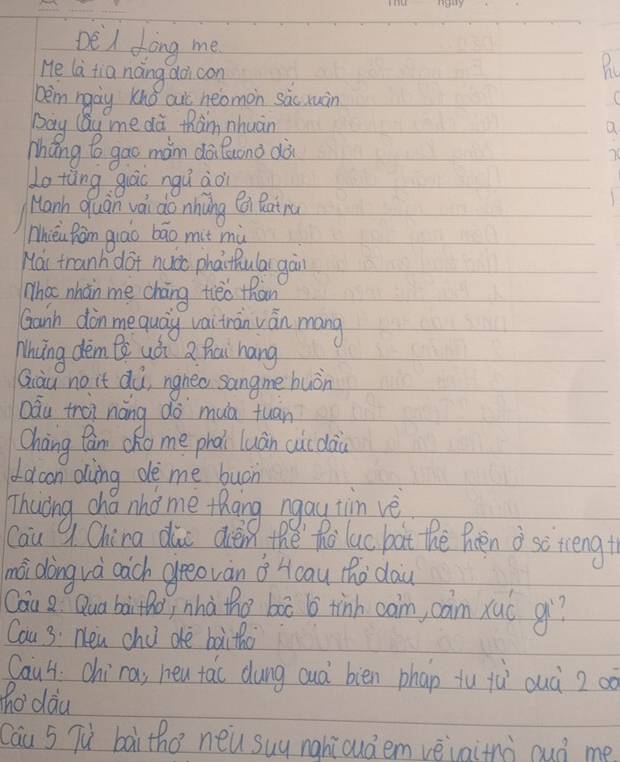 Đề 1 Lòng mẹ
Mẹ là tia nắng đời con
Đêm ngày khổ cực héo mòn sắc xuân
Bạc mẹ đã thấm nhuần
Những gạo mắm dãi đời
Lo từng giấc ngủ à ơi
Manh quần vải áo những rơi
Nhiều hôm giáo bão mịt mù
Mái tranh dột nước phải thu lại gần
Nhọc nhằn mẹ chẳng tiếc thân
Gánh đòn mẹ quảy vai trần vẫn mang
Những đêm ướt 2 hai hàng
Giàu no ít đủ, nghèo sang mẹ buồn
Dẫu trời nắng đổ mưa tuôn
Chẳng làm cho mẹ phải luồn cúi đâu
Là con đừng để mẹ buồn
Thương cha nhớ mẹ tháng ngày tìm về
Câu 1 Chỉ ra đặc điểm thể thơ lục bát thể hiện ở số tiếng tr
mỗi dòng và cách gieo vần ở 4 câu thơ đầu
Câu 2. Qua bài thơ, nhà thơ bộc lộ tình cảm, cảm xúc gì?
Câu 3: Nêu chủ đề bài thơ
Câu 4: Chỉ ra, nêu tác dụng của biện pháp tu từ của 2
thơ đầu
Câu 5 Từ bài thơ nêu suy nghĩ của em về vai trò của mẹ